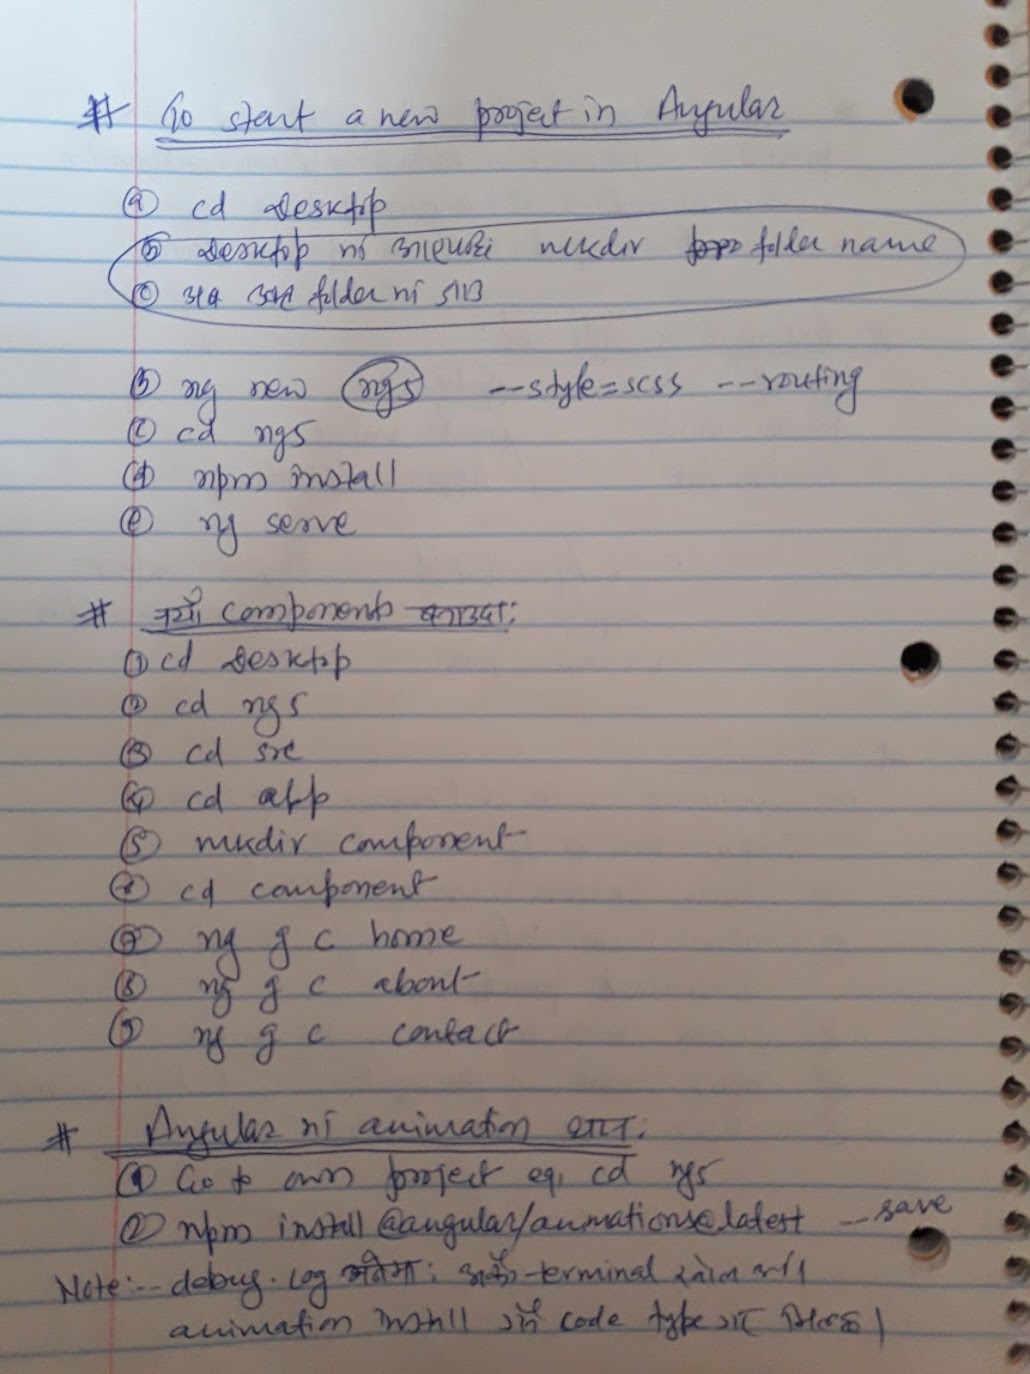 # To start a new project in Angular
ⓐ cd Desktop
ⓑ Desktop मा mkdir folder name
ⓒ अब folder मा
ⓑ ng new ng5 --style=scss --routing
ⓒ cd ng5
ⓓ npm install
ⓔ ng serve
# नयाँ component बनाउदा:
① cd Desktop
② cd ng5
③ cd src
④ cd app
⑤ mkdir component
⑥ cd component
⑦ ng g c home
⑧ ng g c about
⑨ ng g c contact
# Angular मा animation
① Go to own project eg, cd ng5
② npm install @angular/animations@latest --save
Note:-- debug.log terminal
animation install code type